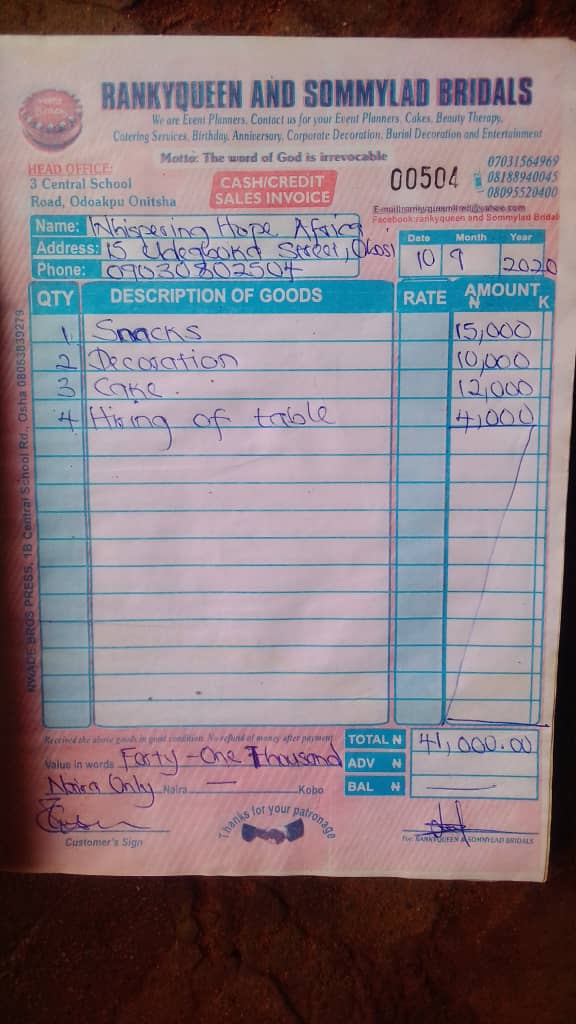 RANKYQUEEN AND SOMMYLAD BRIDALS
We are Event Planners, Contact us for your Event Planners, Cakes, Beauty Therapy,
Catering Services, Birthday, Anniversary, Corporate Decoration, Burial Decoration and Entertainment
Motto: The word of God is irrevocable
HEAD OFFICE:
3 Central School
Road, Odoakpu Onitsha
CASH/CREDIT
SALES INVOICE
00504
07031564969
08188940045
08095520400
Facebook:rankyqueen and Sommylad Bridal
Name: Whispering Hope Africa
Address: 15 Street,
Phone: 09030802504
Date Month Year
10 9 2020
QTY DESCRIPTION OF GOODS RATE AMOUNT
₦ K
1 Snacks 15,000
2 Decoration 10,000
3 Cake. 12,000
4 Hiring of table 4,000
NWADE BROS PRESS, 1B Central School Rd., Osha 08053839279
Received the above goods in good condition. No refund of money after payment
TOTAL ₦ 41,000.00
Value in words Forty-One Thousand
ADV ₦
Naira Only Naira — Kobo
BAL ₦ —
Customer's Sign
Thanks for your patronage
For: RANKYQUEEN & SOMMYLAD BRIDALS